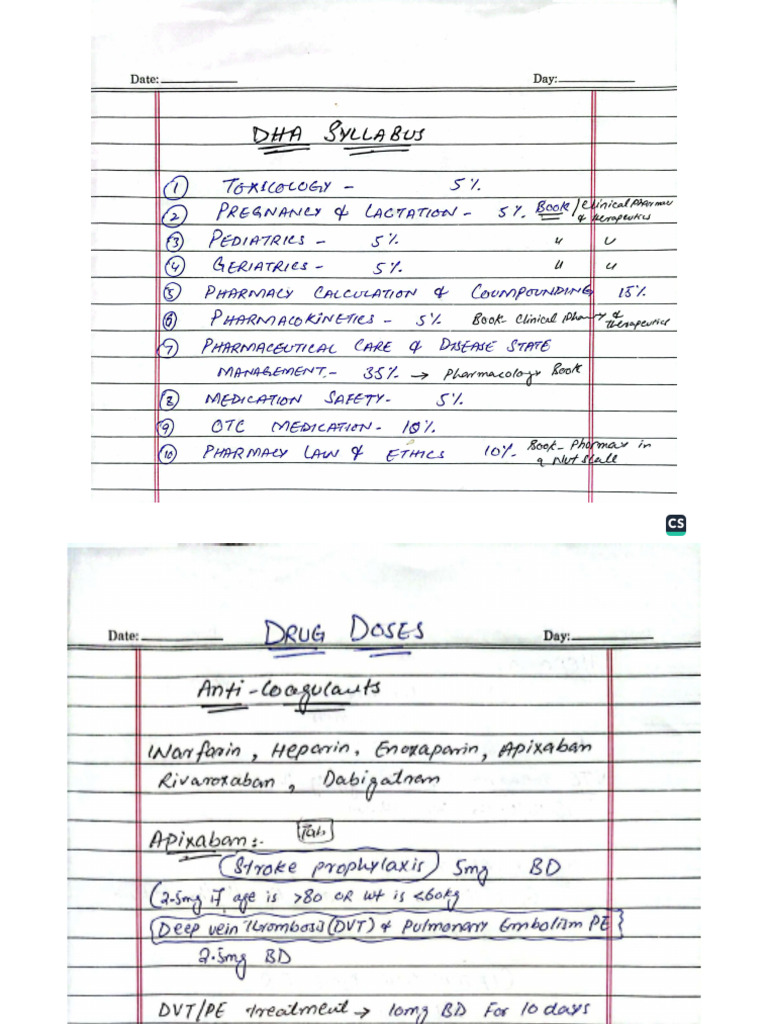 Date: Day:
DHA SYLLABUS
1 TOXICOLOGY - 5%.
2 PREGNANCY & LACTATION - 5%. Book / Clinical Pharmac & therapeutics
3 PEDIATRICS - 5%. " "
4 GERIATRICS - 5%. " "
5 PHARMACY CALCULATION & COUMPOUNDING 15%
6 PHARMACOKINETICS - 5%. Book Clinical Pharmy & Therapeutics
7 PHARMACEUTICAL CARE & DISEASE STATE
MANAGEMENT. - 35%. → Pharmacology Book
8 MEDICATION SAFETY - 5%.
9 OTC MEDICATION - 10%.
10 PHARMACY LAW & ETHICS 10%. Book - Pharmax in a Nut Scall
CS
Date: DRUG DOSES Day:
Anti-Coagulants
Warfarin, Heparin, Enoxaparin, Apixaban
Rivaroxaban, Dabigatran
Apixaban:- Tab
Stroke prophylaxis) 5mg BD
(2.5mg if age is >80 OR wt is <60kg
Deep vein Thrombosis (DVT) & Pulmonary Embolism PE}
2.5mg BD
DVT/PE treatment → 10mg BD For 10 days